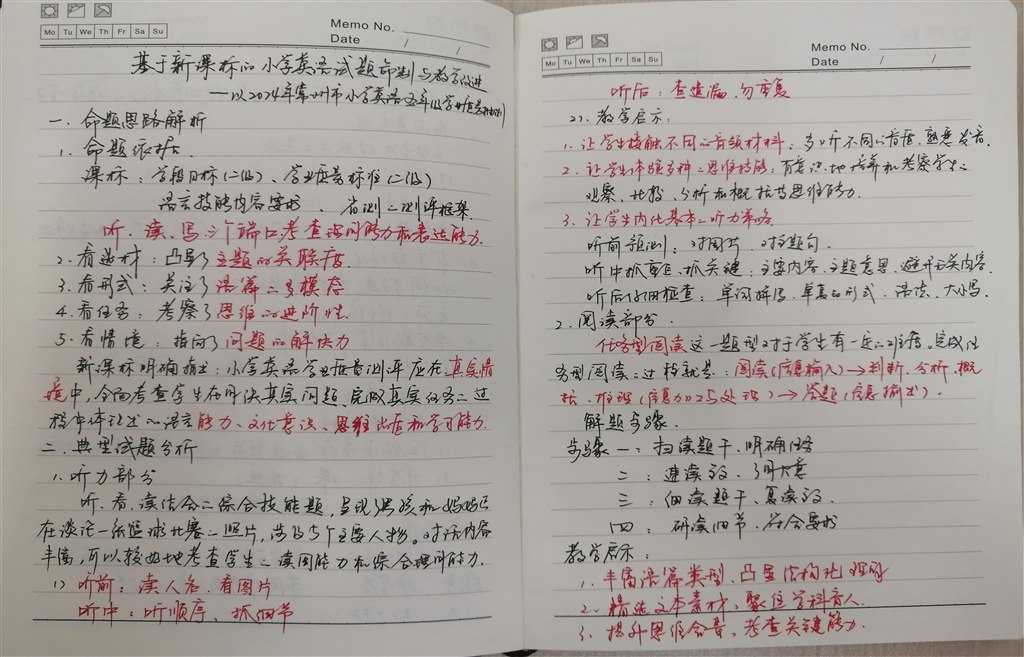 Memo No.
Mo Tu We Th Fr Sa Su
Date / /
基于新课标的小学英语试题命制与教学改进
——以2024年常州市小学英语五年级学业质量监测
一、命题思路解析
1、命题依据:
课标:学段目标(二级)、学业质量标准(二级)
语言技能内容要求、省测二测评框架
听、读、写三个端口考查语用能力和表达能力
2、看选材:凸显了主题的关联度
3、看形式:关注了语篇的多模态
4、看任务:考察了思维的进阶性
5、看情境:指向了问题的解决力
新课标明确指出:小学英语学业质量测评应在真实情
境中,全面考查学生在解决真实问题、完成真实任务的过
程中体现出的语言能力、文化意识、思维品质和学习能力
二、典型试题分析
1、听力部分
听、看、读结合的综合技能题,呈现男孩和妈妈正
在谈论一张篮球比赛的照片,涉及5个主要人物。对话内容
丰富,可以较好地考查学生的读图能力和综合理解能力.
1)听前:读人名、看图片
听中:听顺序、抓细节
Memo No.
Mo Tu We Th Fr Sa Su
Date / /
听后:查遗漏,勿重复
2)、教学启示:
1、让学生接触不同的音频材料:多听不同的音质,熟悉发音.
2、让学生体验多种的思维技能:有意识地培养和考察学生的
观察、比较、分析和概括等思维能力.
3、让学生内化基本的听力策略
听前预测:对图片、对标题句.
听中抓重点、抓关键:主要内容、主题意思、避开无关内容.
听后仔细检查:单词拼写、单复数形式、语法、大小写.
2、阅读部分.
任务型阅读这一题型对于学生有一定的难度。完成任
务型阅读的过程就是:阅读(信息输入)→判断、分析、概
括、推理(信息加工与处理)→答题(信息输出).
解题步骤.
步骤一:扫读题干、明确任务
二:速读文段、了解大意
三:细读题干、复读文段.
四:研读细节、符合要求
教学启示:
1、丰富语篇类型、凸显结构化理解
2、精选文本素材、聚焦学科育人.
3、提升思维含量、考查关键能力.